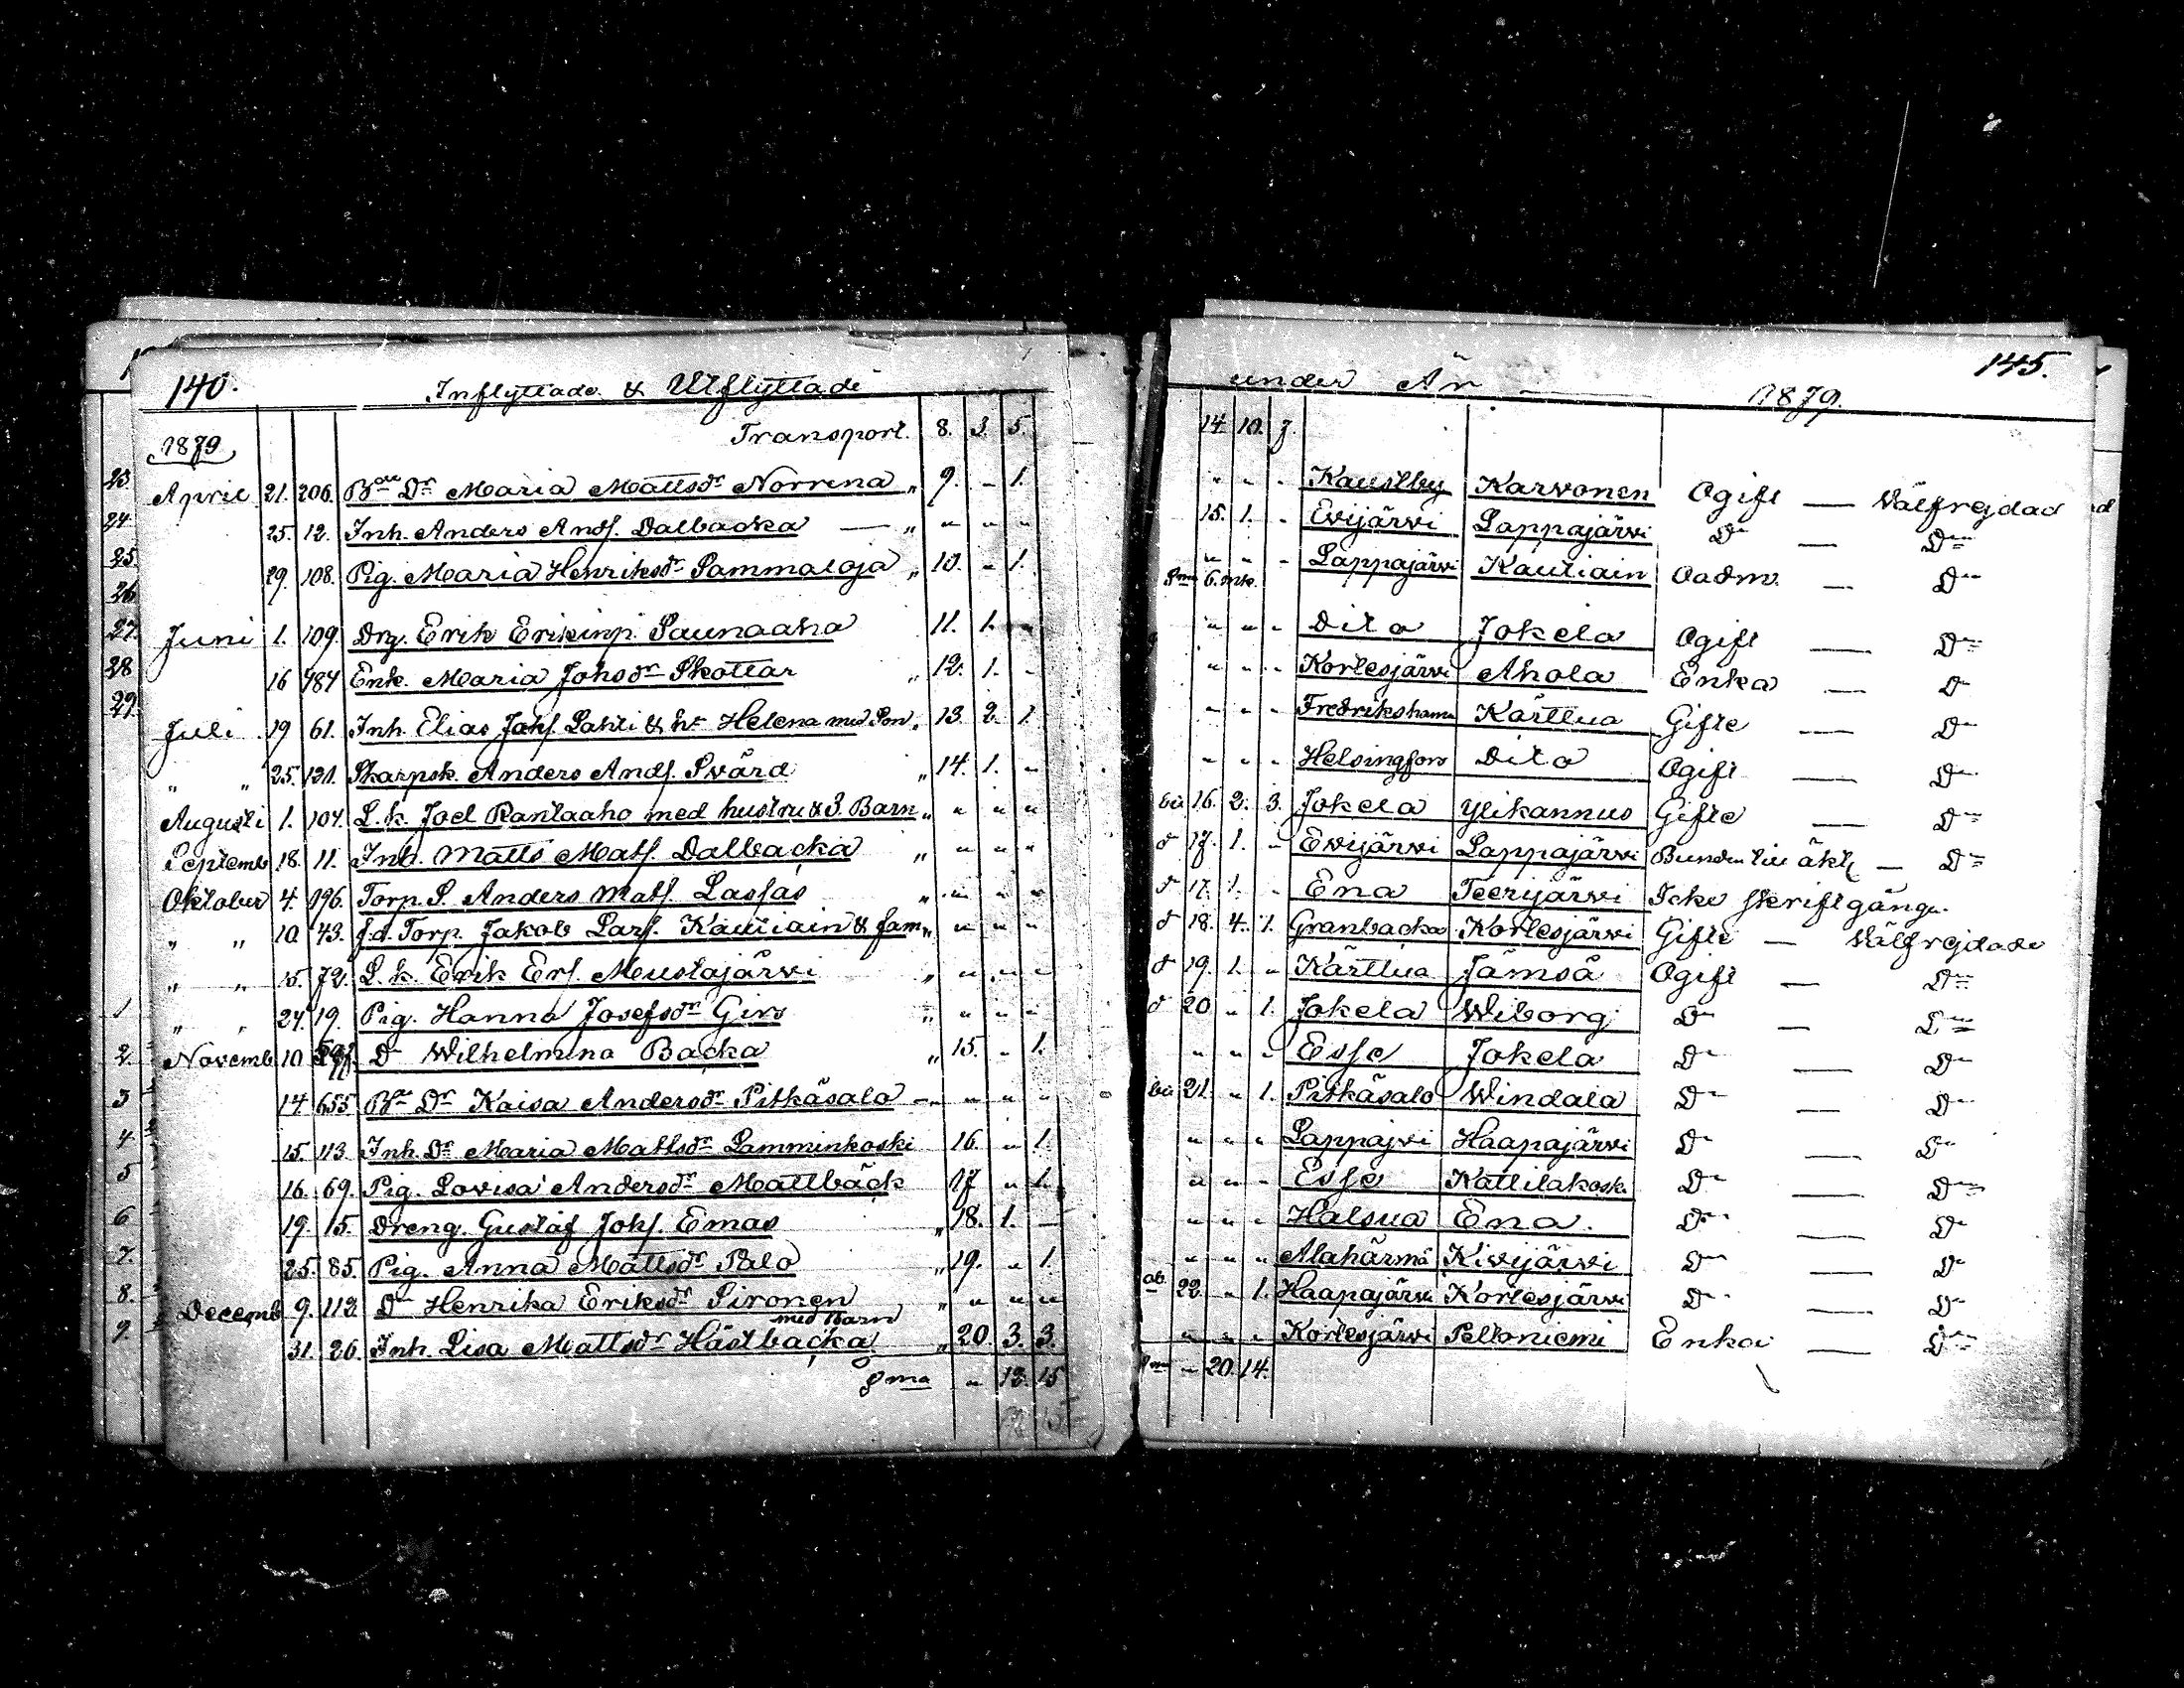 140. Inflyttade & Utflyttade under År 1879. 145.
1879 Transport. 8. 3. 5. 14. 10. 7.
April 21. 206. Bde Dr Maria Mattsdr Norrena „ 9. - 1. " - - Kaustby Karvonen Ogift — Välfrejdad
25. 12. Inh. Anders Andſ. Dalbacka — „ " " " 15. 1. - Evijärvi Lappajärvi Do — Do
29. 108. Pig. Maria Henriksdr Sammaloja „ 10. - 1. " - - Lappajärvi Kautiain Oadm. — Do
Sma 6. mk.
Juni 1. 109. Drg. Erik Erikinp. Saunaaho 11. 1. - " " " Dito Jokela Ogift — Do
16 484 Enk. Maria Johsdr Skottar „ 12. 1. - " - - Kortesjärvi Ahola Enka — Do
Juli 19 61. Inh. Elias Johſ. Lahti & hu Helena med Son „ 13. 2. 1. - - - Fredrikshamn Kärttua Gifte — Do
„ „ 25. 131. Skarpsk. Anders Andſ. Svärd „ 14. 1. - - - - Helsingfors Dito Ogift — Do
Augusti 1. 104. L.k. Joel Rantaaho med hustru & 3 Barn „ " " " 16. 2. 3. Jokela Ylikannus Gifte — Do
Septemb 18. 11. Inh. Matts Matſ. Dalbacka „ " " " 17. 1. - Evijärvi Lappajärvi — Do
Oktober 4. 196. Torp. S. Anders Matſ. Lassas „ " " " 17. 1. - Ena Teerijärvi Icke skriftgång.
„ „ 10 43. f.d. Torp. Jakob Larſ. Kautiain & fam „ " " " 18. 4. 1. Granbacka Kortesjärvi Gifte — Välfrejdade
„ „ 15. 72. L.k. Erik Erſ. Mustajärvi „ " " " 19. 1. " Kärttua Jämsä Ogift — Do
„ „ 24. 19. Pig. Hanna Josefsdr Girs „ " " " 20 " 1. Jokela Wiborg Do — Do
Novemb 10 Do Wilhelmina Backa „ 15. - 1. " " " Esse Jokela Do — Do
14. 655 Bde Dr Kaisa Andersdr Pitkäsalo — " " " 21. " 1. Pitkäsalo Windala Do — Do
15. 113. Inh. Dr Maria Mattsdr Lamminkoski 16. " 1. " " " Lappajvi Haapajärvi Do — Do
16. 69. Pig. Lovisa Andersdr Mattbäck 17 " 1. " " " Esse Kattilakosk. Do — Do
19. 15. Dreng. Gustaf Johſ. Emas „ 18. 1. — " " " Halsua Ena. Do — Do
25. 85. Pig. Anna Mattsdr Palo „ 19. " 1. " " " Alahärmä Kivijärvi Do — Do
Decemb 9. 112 Do Henrika Eriksdr Sironen „ " " " 22. " 1. Haapajärvi Kortesjärvi Do — Do
31. 26. Inh. Lisa Mattsdr Hästbacka med Barn „ 20. 3. 3. " " " Kortesjärvi Peltoniemi Enka — Do
Sma " 12. 15 Sma " 20. 14.